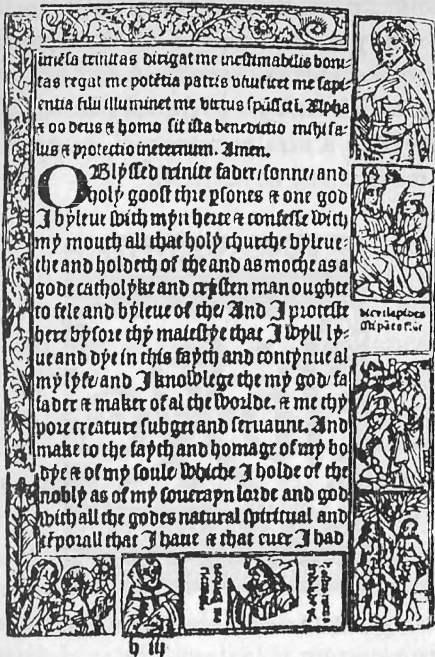 mẽsa trinitas dirigat me inestimabilis boni-
tas regat me potẽtia patris viuificet me sapi-
entia filii illuminet me virtus spũssctĩ. Alpha
⁊ oo deus ⁊ homo sit ista benedictio mihi sa-
lus ⁊ protectio ineternum. Amen.
O Blyssed trinite fader/ sonne/ and
holy goost thre psones ⁊ one god
I byleue with myn herte ⁊ confesse with
my mouth all that holy churche byleue-
the and holdeth of the and as moche as a
gode catholyke and crysten man oughte
to fele and byleue of the/ And I proteste
here byfore thy maiestye that I wyll ly-
ue and dye in this fayth and contynue al
my lyfe/ and I knowlege the my god/ fa
fader ⁊ maker of al the worlde. ⁊ me thy
pore creature subget and seruaunt. And
make to the fayth and homage of my bo
dye ⁊ of my soule/ whiche I holde of the
nobly as of my souerayn lorde and god
with all the godes natural spiritual and
tẽporall that I haue ⁊ that euer I had
dic vt lapides
b iij